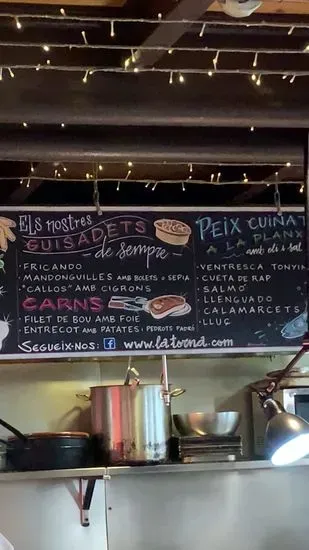 Els nostres
GUISADETS
de sempre
· FRICANDO
· MANDONGUILLES AMB BOLETS O SEPIA
· "CALLOS" AMB CIGRONS
CARNS
· FILET DE BOU AMB FOIE
· ENTRECOT AMB PATATES I PEDROTS PADRÓ
SEGUEIX-NOS: f www.latorna.com
PEIX CUINAT
A LA PLANX
amb oli i sal
· VENTRESCA TONYIN
· CUETA DE RAP
· SALMÓ
· LLENGUADO
· CALAMARCETS
· LLUÇ